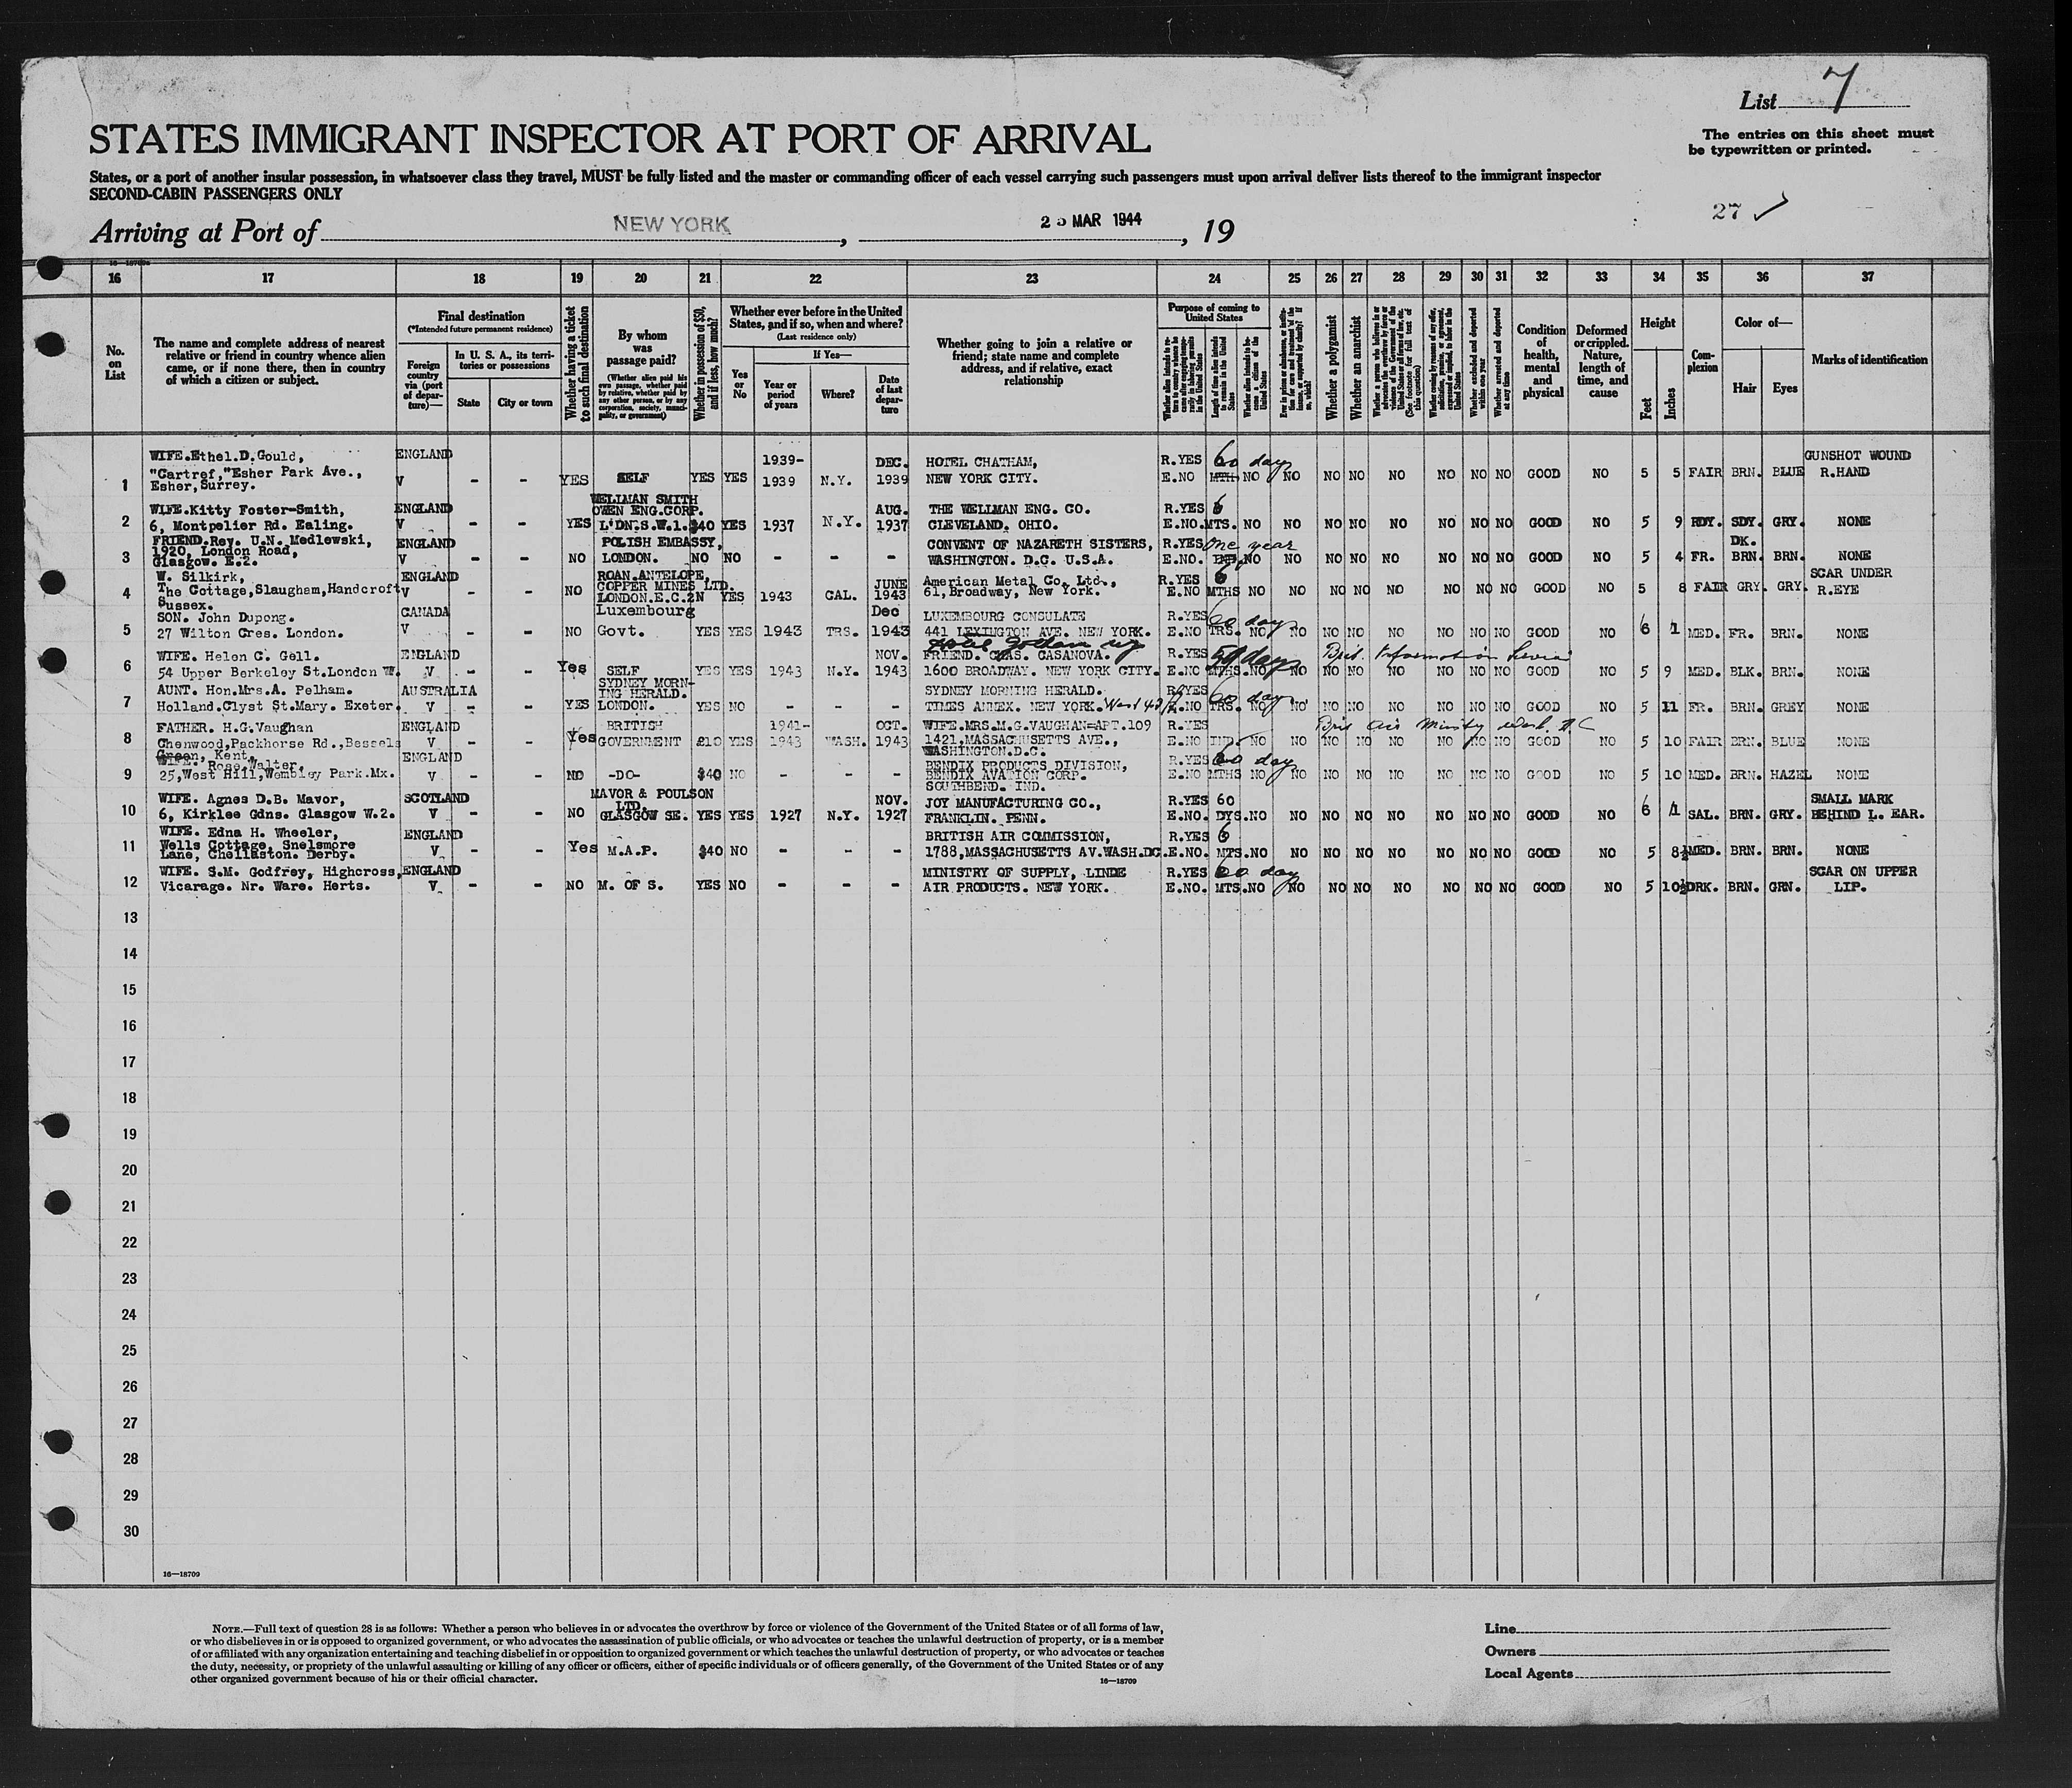 List 7
The entries on this sheet must
be typewritten or printed.
STATES IMMIGRANT INSPECTOR AT PORT OF ARRIVAL
States, or a port of another insular possession, in whatsoever class they travel, MUST be fully listed and the master or commanding officer of each vessel carrying such passengers must upon arrival deliver lists thereof to the immigrant inspector
SECOND-CABIN PASSENGERS ONLY
27
Arriving at Port of NEW YORK, MAR 1944, 19
16 17 18 19 20 21 22 23 24 25 26 27 28 29 30 31 32 33 34 35 36 37
No. on List
The name and complete address of nearest relative or friend in country whence alien came, or if none there, then in country of which a citizen or subject.
Final destination
(*Intended future permanent residence)
Foreign country via (port of departure)—
In U. S. A., its territories or possessions
State
City or town
Whether having a ticket to such final destination
By whom was passage paid?
(Whether alien paid his own passage, whether paid by relative, whether paid by any other person, or by any corporation, society, municipality, or government)
Whether in possession of $50, and if less, how much?
Whether ever before in the United States, and if so, when and where?
(Last residence only)
Yes or No
If Yes—
Year or period of years
Where?
Date of last departure
Whether going to join a relative or friend; state name and complete address, and if relative, exact relationship
Purpose of coming to United States
Length of time alien intends to remain in the United States
Whether alien intends to become a citizen of the United States
Whether a polygamist
Whether an anarchist
Whether excluded and deported within one year
Whether arrested and deported at any time
Condition of health, mental and physical
Deformed or crippled. Nature, length of time, and cause
Height
Feet
Inches
Complexion
Color of—
Hair
Eyes
Marks of identification
1 WIFE.Ethel.D.Gould, "Cartref,"Esher Park Ave., Esher,Surrey. ENGLAND V - - YES SELF YES YES 1939- 1939 N.Y. DEC. 1939 HOTEL CHATHAM, NEW YORK CITY. R.YES E.NO 60 days NO NO NO NO NO NO NO NO GOOD NO 5 5 FAIR BRN. BLUE GUNSHOT WOUND R.HAND
2 WIFE.Kitty Foster-Smith, 6, Montpelier Rd. Ealing. ENGLAND V - - YES WELLMAN SMITH OWEN ENG.CORP. L'DN.S.W.1. $40 YES 1937 N.Y. AUG. 1937 THE WELLMAN ENG. CO. CLEVELAND. OHIO. R.YES E.NO. 6 MTS. NO NO NO NO NO NO NO NO GOOD NO 5 9 RDY. SDY. GRY. NONE
3 FRIEND.Rev. U.N. Medlewski, 1920, London Road, Glasgow. E.2. ENGLAND V - - NO POLISH EMBASSY, LONDON. NO NO - - - CONVENT OF NAZARETH SISTERS, WASHINGTON. D.C. U.S.A. R.YES E.NO. One year NO NO NO NO NO NO NO NO GOOD NO 5 4 FR. DK. BRN. BRN. NONE
4 W. Silkirk, The Cottage,Slaugham,Handcroft, Sussex. ENGLAND V - - NO ROAN.ANTELOPE, COPPER MINES LTD. LONDON.E.C.2 N YES 1943 CAL. JUNE 1943 American Metal Co. Ltd., 61,Broadway, New York. R.YES E.NO 6 MTHS NO NO NO NO NO NO NO NO GOOD NO 5 8 FAIR GRY. GRY. SCAR UNDER R.EYE
5 SON. John Dupong. 27 Wilton Cres. London. CANADA V - - NO Luxembourg Govt. YES YES 1943 TRS. Dec 1943 LUXEMBOURG CONSULATE 441 LEXINGTON AVE. NEW YORK. R.YES E.NO 60 days TRS. NO NO NO NO NO NO NO NO GOOD NO 6 1 MED. FR. BRN. NONE
6 WIFE. Helen C. Gell. 54 Upper Berkeley St.London W. ENGLAND V - - Yes SELF YES YES 1943 N.Y. NOV. 1943 FRIEND. CHAS. CASANOVA. 1600 BROADWAY. NEW YORK CITY. R.YES E.NO days MTHS.NO NO NO NO NO NO NO NO GOOD NO 5 9 MED. BLK. BRN. NONE
Brit. Information Service
7 AUNT. Hon.Mrs.A. Pelham. Holland.Clyst St.Mary. Exeter. AUSTRALIA V - - YES SYDNEY MORNING HERALD. LONDON. YES NO - - - SYDNEY MORNING HERALD. TIMES ANNEX. NEW YORK. West 43 R.YES E.NO 60 days TRS. NO NO NO NO NO NO NO NO GOOD NO 5 11 FR. BRN. GREY NONE
8 FATHER. H.G.Vaughan Chenwood,Packhorse Rd.,Bessels Green, Kent. ENGLAND V - - Yes BRITISH GOVERNMENT £10 YES 1941- 1943 WASH. OCT. 1943 WIFE.MRS.M.G.VAUGHAN=APT.109 1421,MASSACHUSETTS AVE., WASHINGTON.D.C. R.YES E.NO IND. NO NO NO NO NO NO NO NO GOOD NO 5 10 FAIR BRN. BLUE NONE
Brit Air Ministry Wash. D.C
9 WIFE. Rose,Walter, 25,West Hill,Wembley Park.Mx. ENGLAND V - - NO -DO- $40 NO - - - BENDIX PRODUCTS DIVISION, BENDIX AVATION CORP. SOUTHBEND. IND. R.YES E.NO 60 days MTHS NO NO NO NO NO NO NO NO GOOD NO 5 10 MED. BRN. HAZEL NONE
10 WIFE. Agnes D.B. Mavor, 6, Kirklee Gdns. Glasgow W.2. SCOTLAND V - - NO MAVOR & POULSON LTD. GLASGOW SE. YES YES 1927 N.Y. NOV. 1927 JOY MANUFACTURING CO., FRANKLIN. PENN. R.YES E.NO. 60 DYS.NO NO NO NO NO NO NO NO GOOD NO 6 1 SAL. BRN. GRY. SMALL MARK BEHIND L. EAR.
11 WIFE. Edna H. Wheeler, Wells Cottage, Snelsmore Lane, Chellaston. Derby. ENGLAND V - - Yes M.A.P. $40 NO - - - BRITISH AIR COMMISSION, 1788,MASSACHUSETTS AV.WASH.DC. R.YES E.NO. 6 MTS.NO NO NO NO NO NO NO NO GOOD NO 5 8½ MED. BRN. BRN. NONE
12 WIFE. S.M. Godfrey, Highcross, Vicarage. Nr. Ware. Herts. ENGLAND V - - NO M. OF S. YES NO - - - MINISTRY OF SUPPLY, LINDE AIR PRODUCTS. NEW YORK. R.YES E.NO. 60 days MTS.NO NO NO NO NO NO NO NO GOOD NO 5 10½ DRK. BRN. GRN. SCAR ON UPPER LIP.
13
14
15
16
17
18
19
20
21
22
23
24
25
26
27
28
29
30
16—18709
NOTE.—Full text of question 28 is as follows: Whether a person who believes in or advocates the overthrow by force or violence of the Government of the United States or of all forms of law,
or who disbelieves in or is opposed to organized government, or who advocates the assassination of public officials, or who advocates or teaches the unlawful destruction of property, or is a member
of or affiliated with any organization entertaining and teaching disbelief in or opposition to organized government or which teaches the unlawful destruction of property, or who advocates or teaches
the duty, necessity, or propriety of the unlawful assaulting or killing of any officer or officers, either of specific individuals or of officers generally, of the Government of the United States or of any
other organized government because of his or their official character.
16—18709
Line
Owners
Local Agents